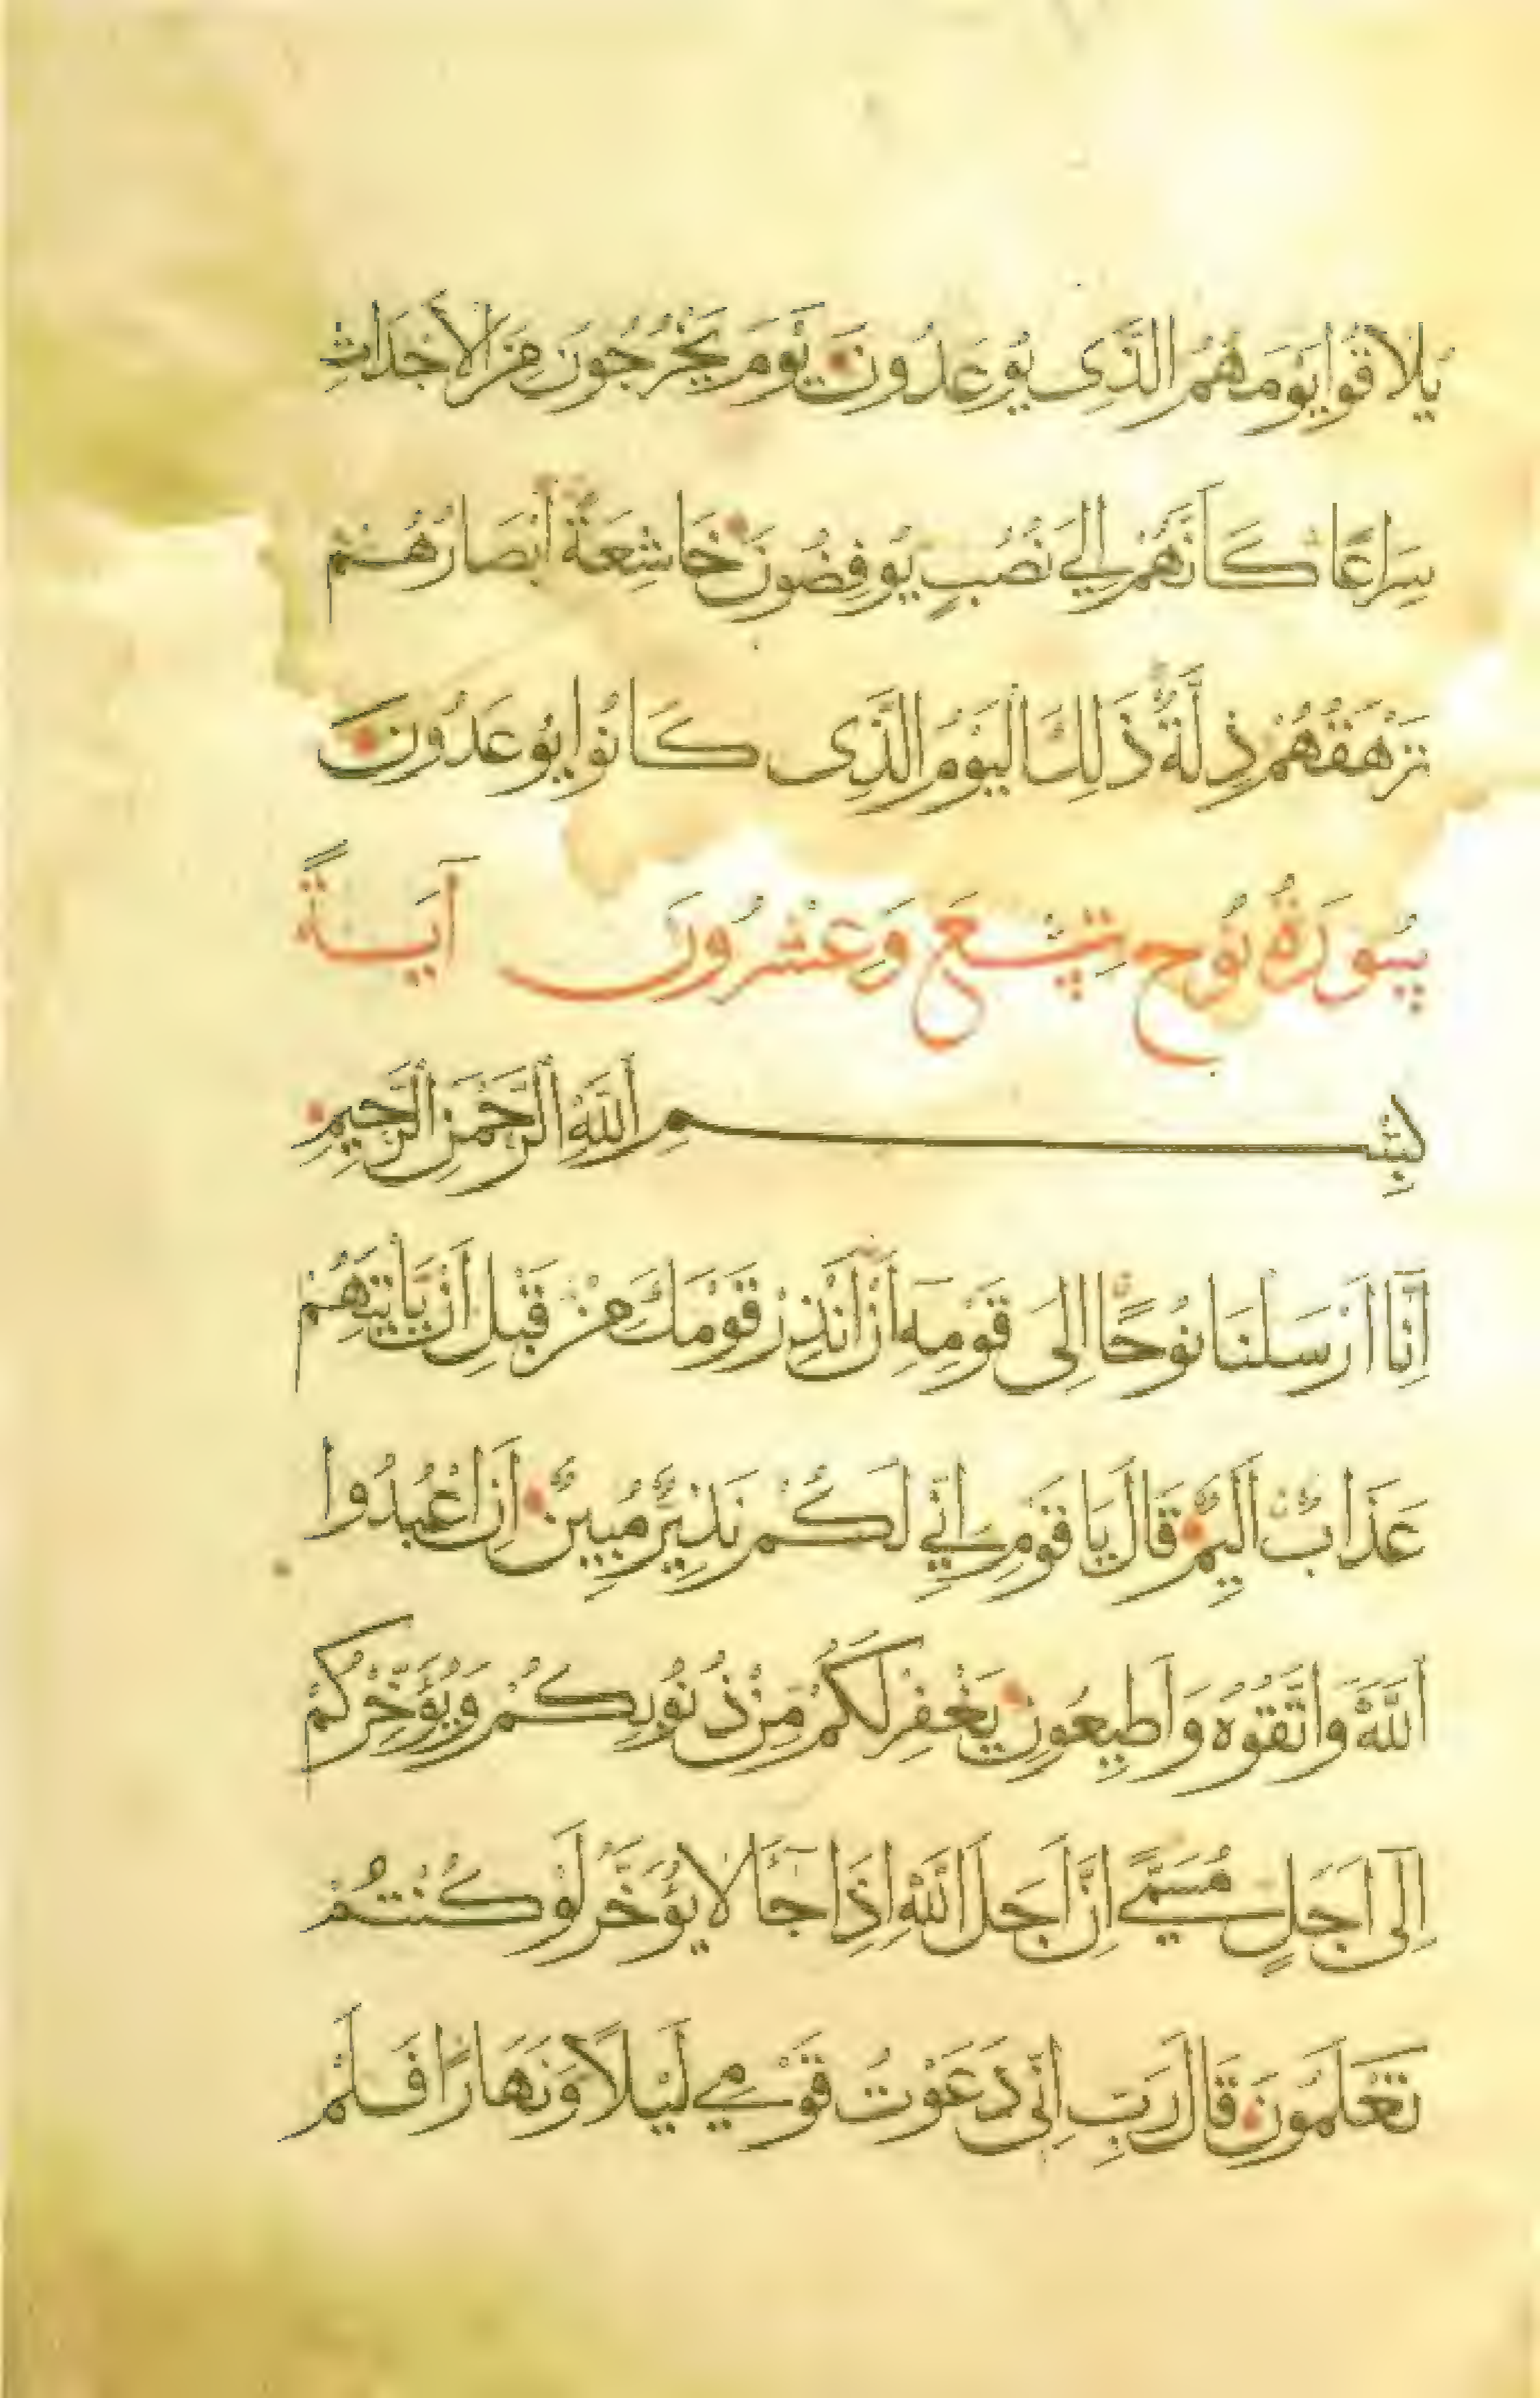 يُلَاقُوا يَوْمَهُمُ الَّذِى يُوعَدُونَ يَوْمَ يَخْرُجُونَ مِنَ الْاَجْدَاثِ
سِرَاعًا كَاَنَّهُمْ اِلٰي نُصُبٍ يُوفِضُونَ خَاشِعَةً اَبْصَارُهُمْ
تَرْهَقُهُمْ ذِلَّةٌ ذَلِكَ الْيَوْمُ الَّذِى كَانُوا يُوعَدُونَ
سُورَةُ نُوحٍ تِسْعَ وَعِشْرُونَ آيَةً
بِسْمِ اللَّهِ الرَّحْمَنِ الرَّحِيمِ
اِنَّا اَرْسَلْنَا نُوحًا اِلَى قَوْمِهِ اَنْ اَنْذِرْ قَوْمَكَ مِنْ قَبْلِ اَنْ يَاْتِيَهُمْ
عَذَابٌ اَلِيمٌ قَالَ يَا قَوْمِ اِنِّي لَكُمْ نَذِيرٌ مُبِينٌ اَنِ اعْبُدُوا
اللَّهَ وَاتَّقُوهُ وَاَطِيعُونِ يَغْفِرْ لَكُمْ مِنْ ذُنُوبِكُمْ وَيُؤَخِّرْكُمْ
اِلَى اَجَلٍ مُسَمًّى اِنَّ اَجَلَ اللَّهِ اِذَا جَآءَ لَا يُؤَخَّرُ لَوْ كُنْتُمْ
تَعْلَمُونَ قَالَ رَبِّ اِنِّى دَعَوْتُ قَوْمِي لَيْلًا وَنَهَارًا فَلَمْ